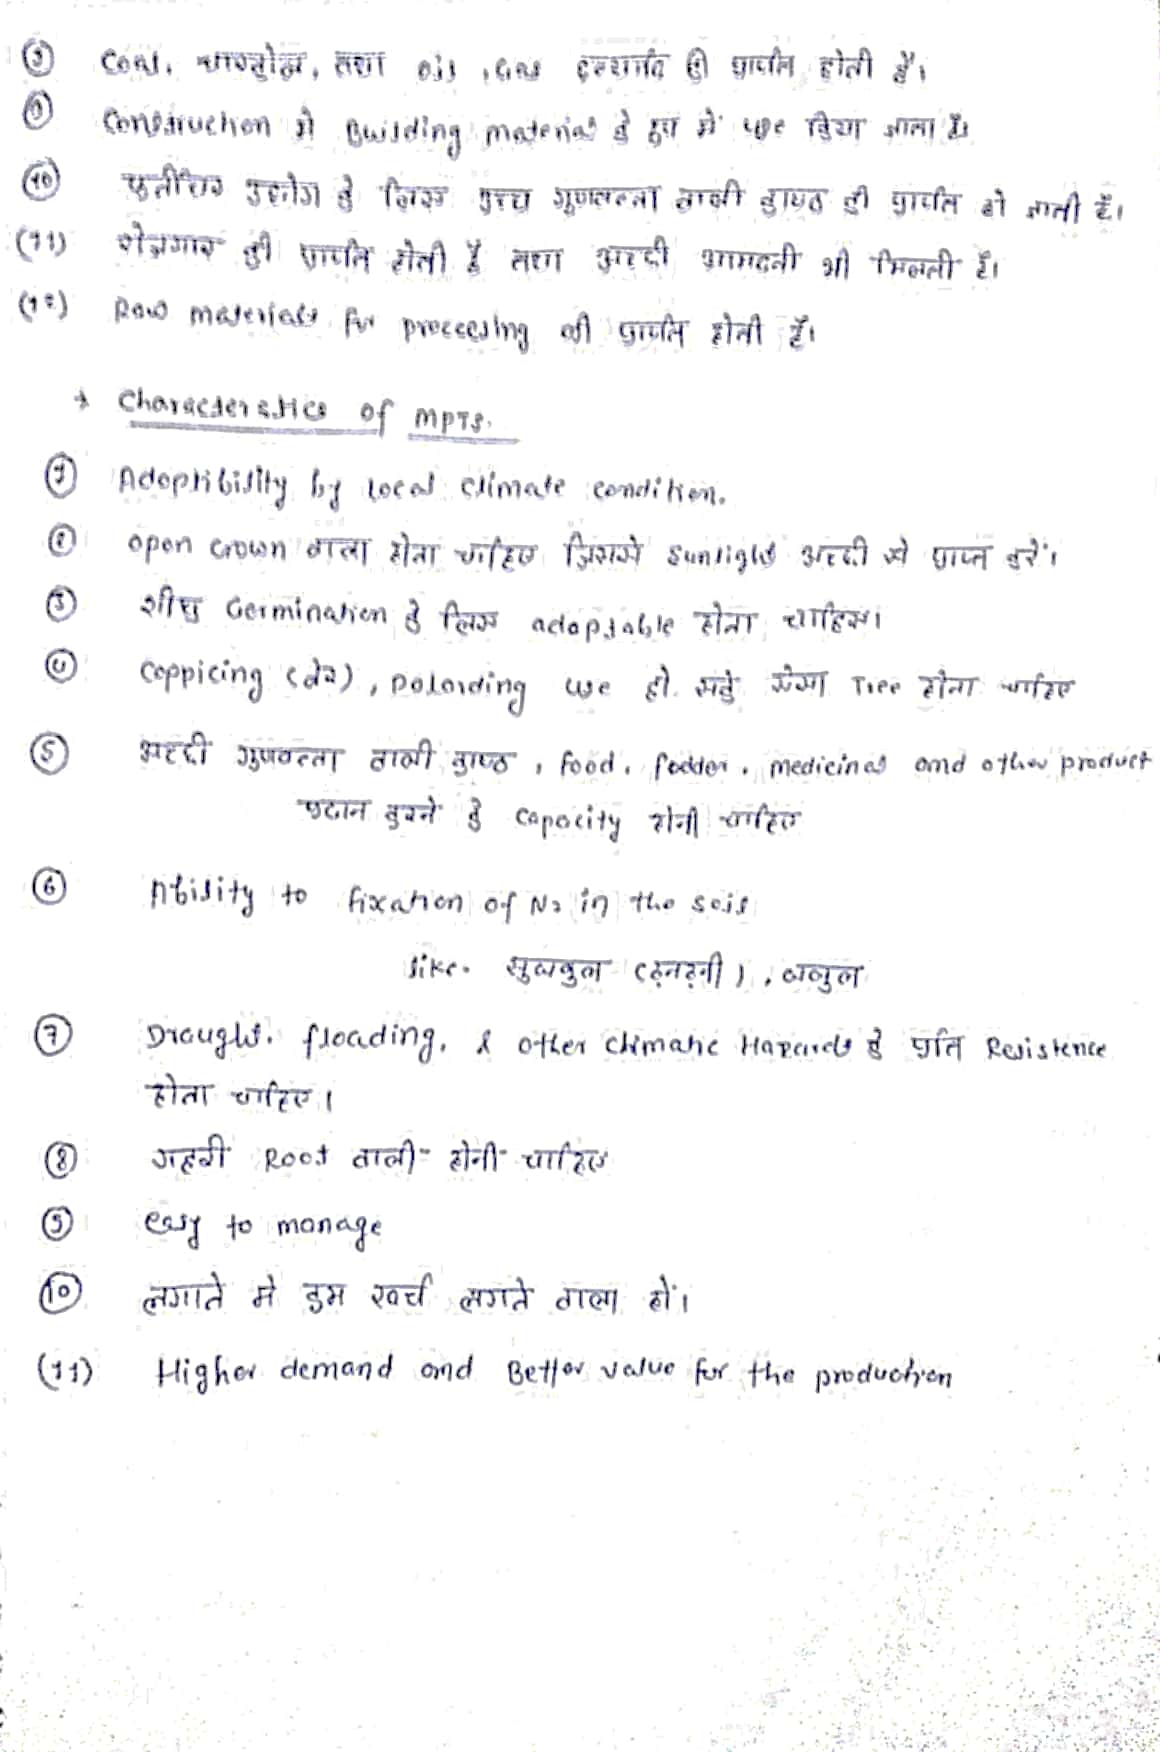 Coal, चारकोल, तथा oil, Gas इत्यादि की प्राप्ति होती है।
(9) Construction मे Building material के रूप मे use किया जाता है।
(10) फर्नीचर उद्योग के लिए उच्च गुणवत्ता वाली काष्ठ की प्राप्ति हो जाती है।
(11) रोजगार की प्राप्ति होती है तथा अच्छी आमदनी भी मिलती है।
(12) Raw materials for proccesing की प्राप्ति होती है।
→ Characterstics of MPTS.
(1) Adoptibility by local climate condition.
(2) open crown वाला होना चाहिए जिससे sunlight अच्छी से प्राप्त करें।
(3) शीघ्र Germination के लिए adoptable होना चाहिए।
(4) Coppicing, Polarding use हो सके ऐसा Tree होना चाहिए
(5) अच्छी गुणवत्ता वाली काष्ठ, food, fodder, medicinal and other product
प्रदान करने के capacity होनी चाहिए
(6) Ability to fixation of N2 in the soil
like. सुबबुल, बबुल
(7) Draught, floading, & other climatic Hazards के प्रति Resistence
होना चाहिए।
(8) गहरी Root वाली होनी चाहिए
(9) easy to manage
(10) लगाने मे कम खर्च लगने वाला हो।
(11) Higher demand and Better value for the production